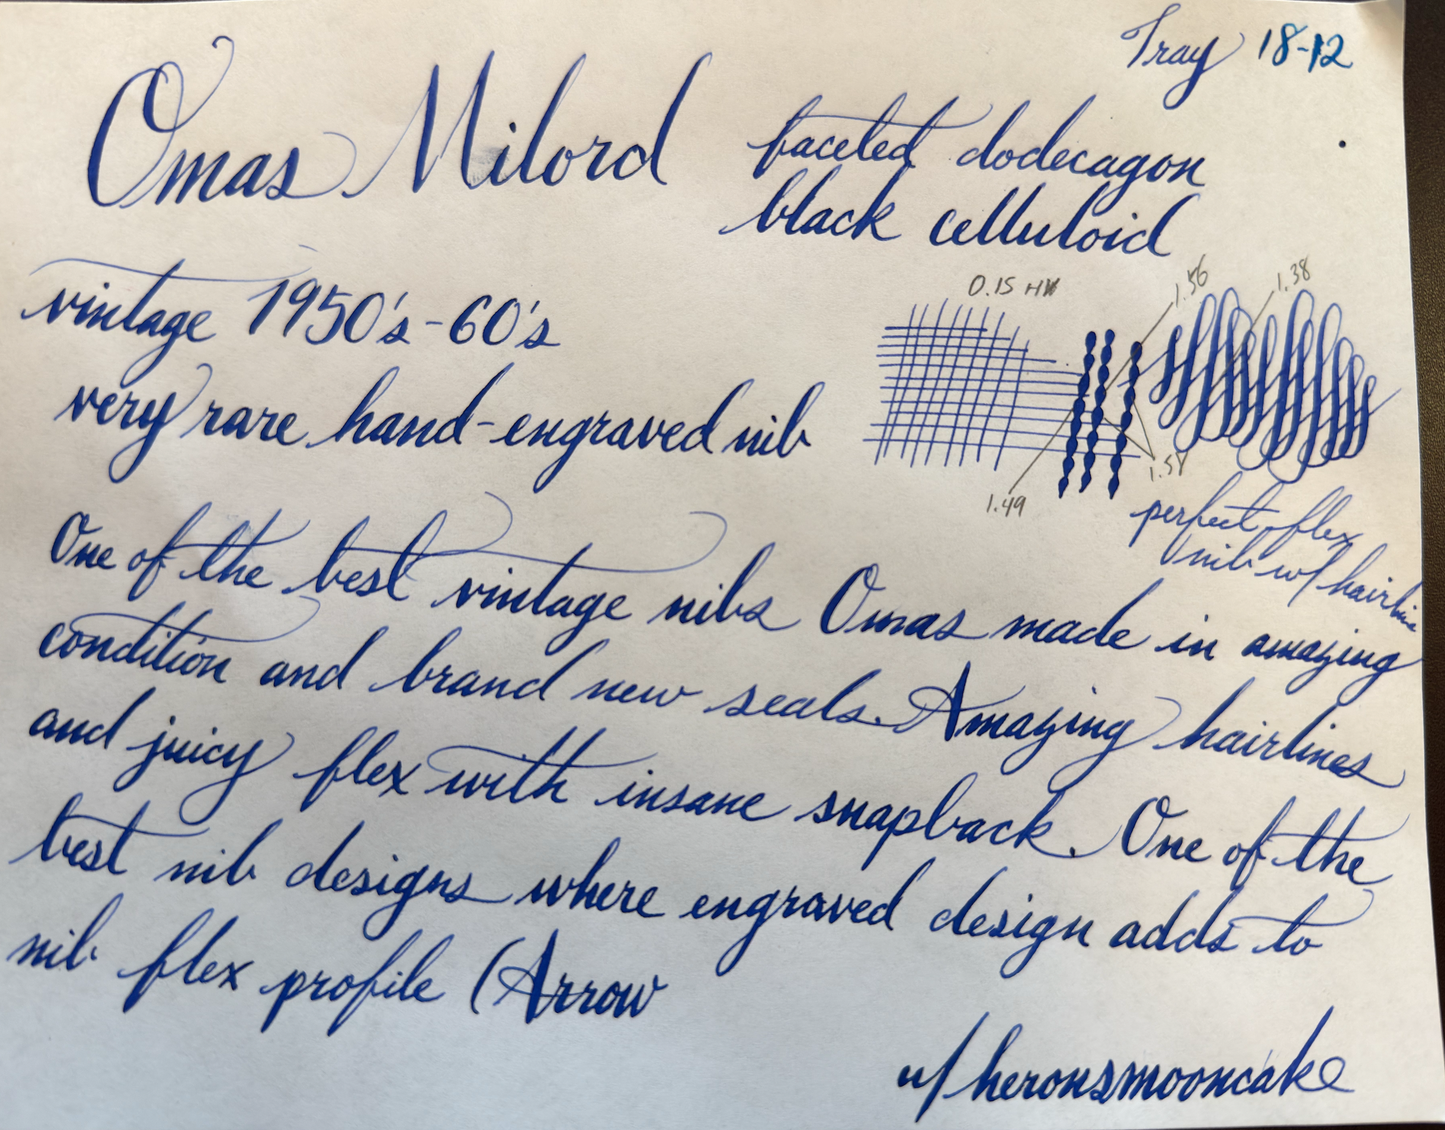 Tray 18-12
Omas Milord
faceted dodecagon
black celluloid
vintage 1950's-60's
very rare hand-engraved nib
0.15 HW
1.56
1.38
1.49
perfect flex
nib w/ hairline
One of the best vintage nibs Omas made in amazing
condition and brand new seals. Amazing hairlines
and juicy flex with insane snapback. One of the
best nib designs where engraved design adds to
nib flex profile (Arrow
u/heronsmooncake